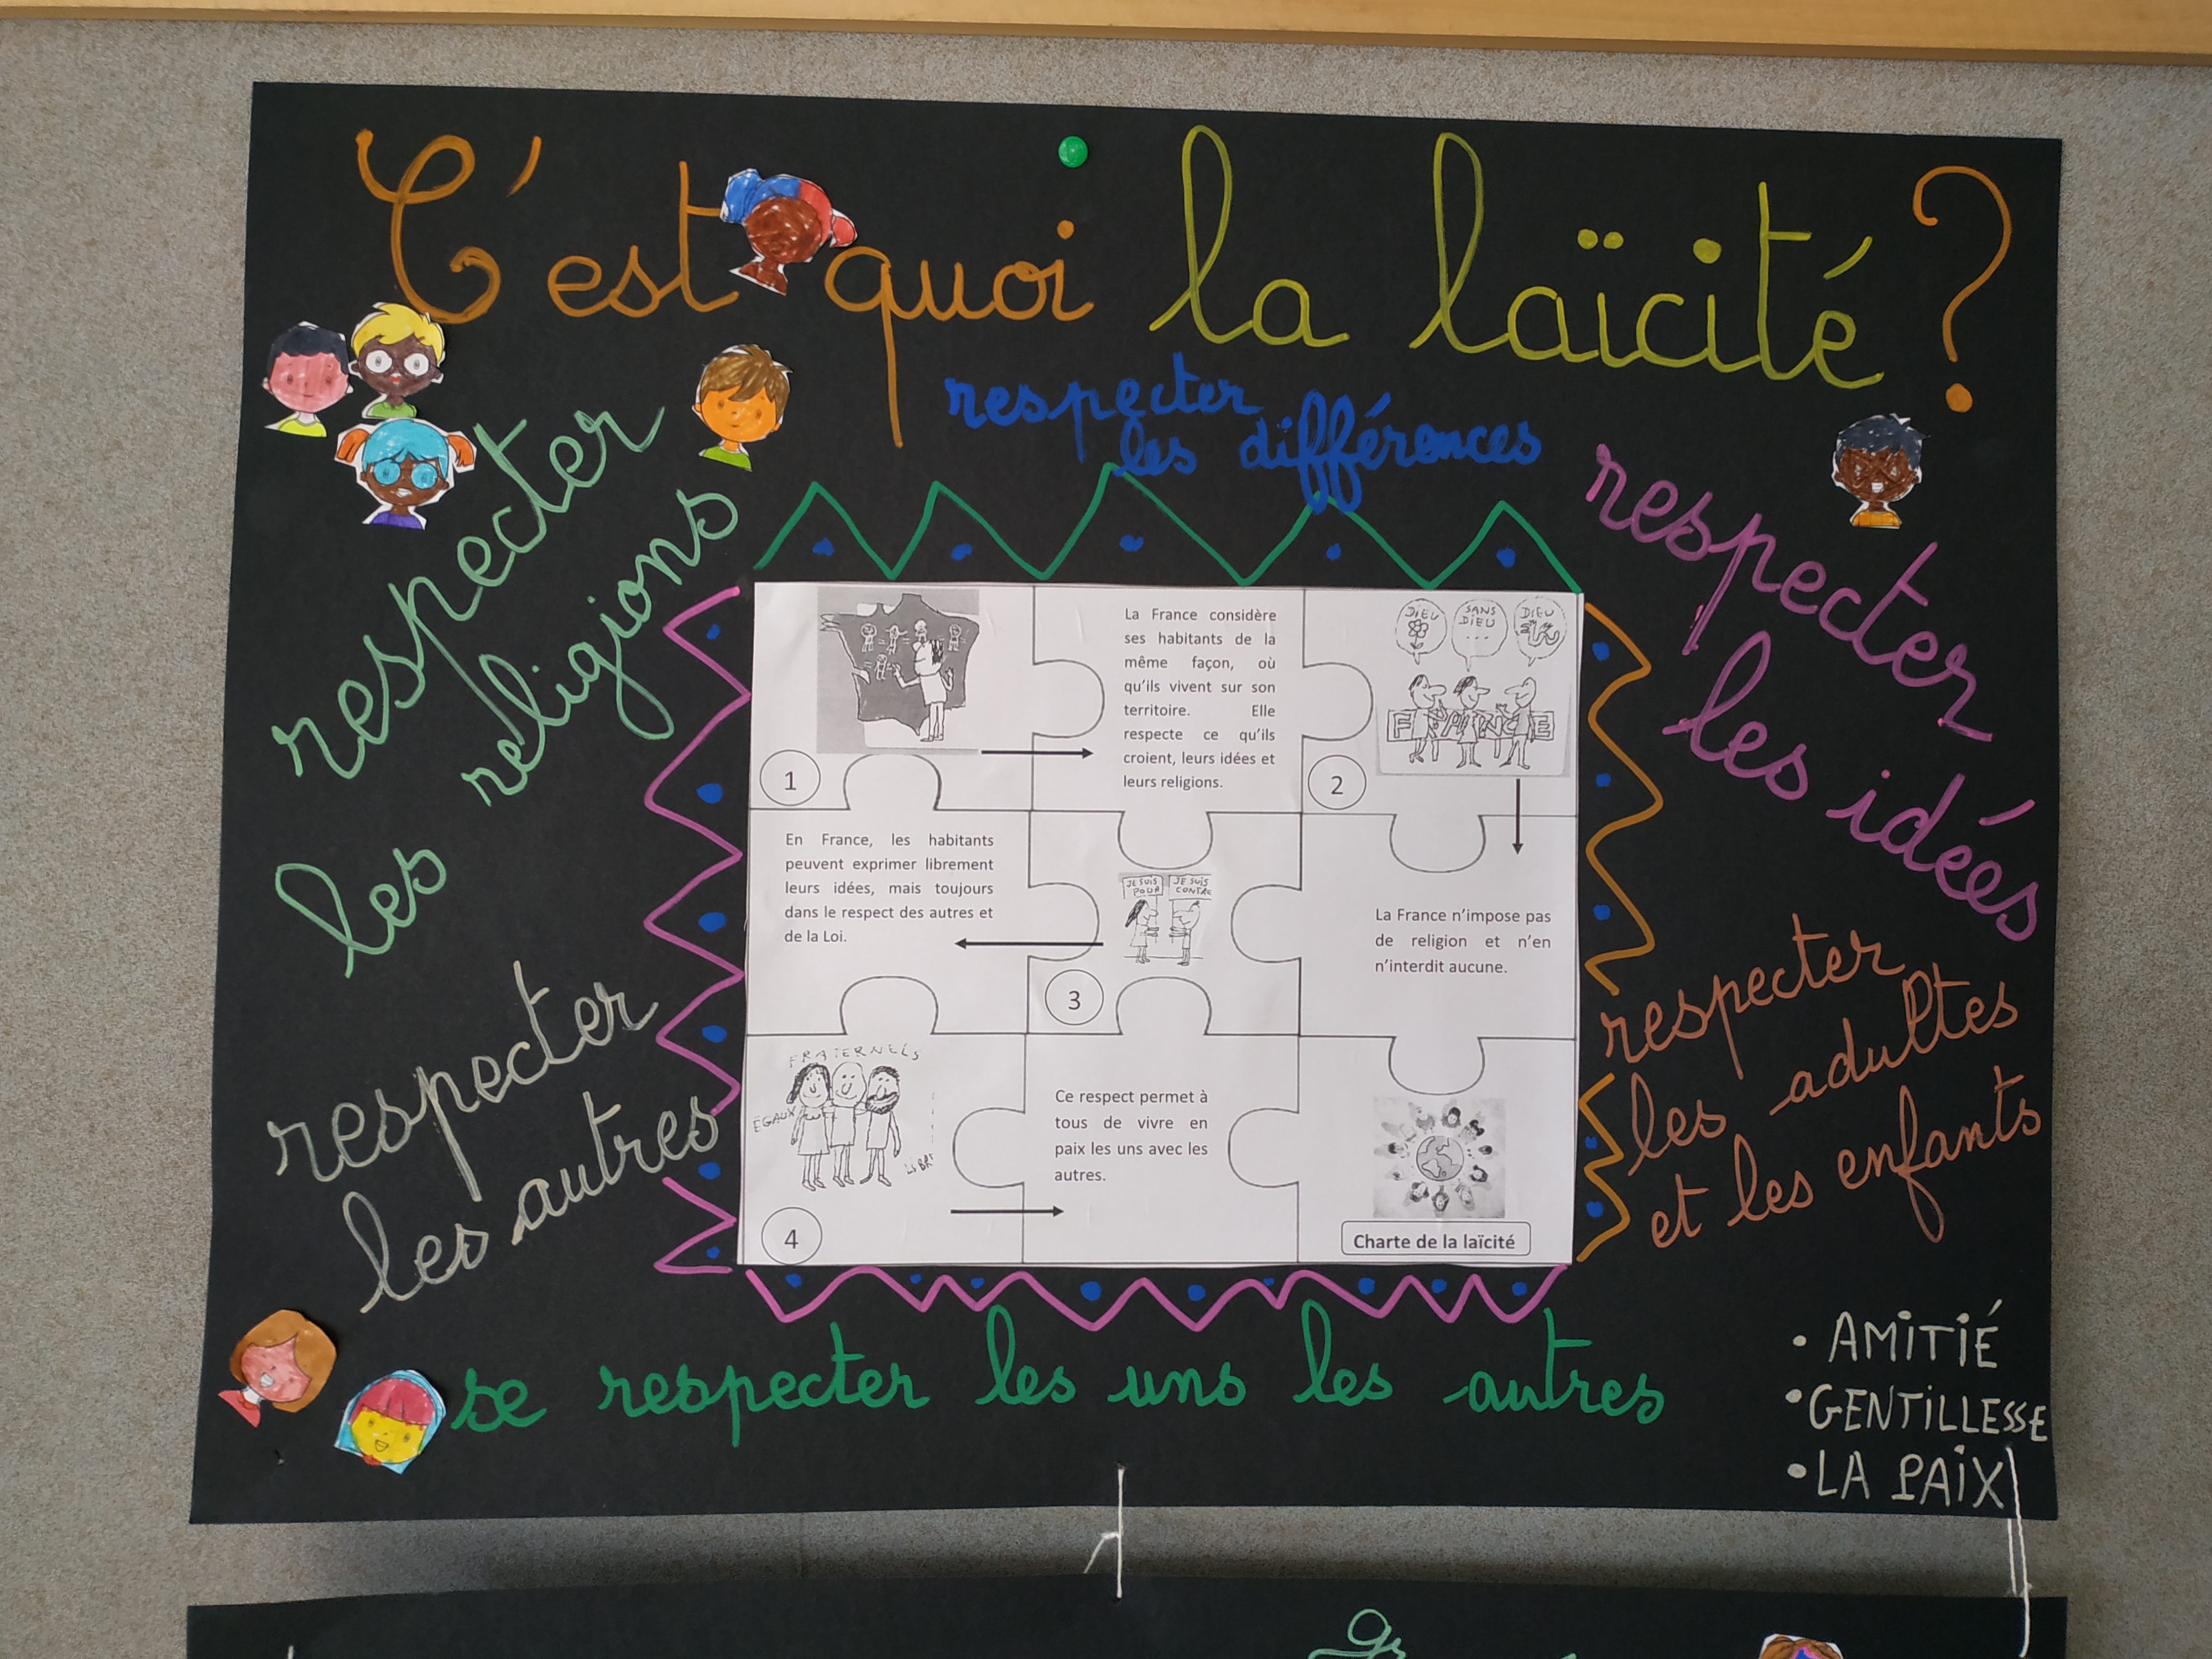 C'est quoi la laïcité ?
respecter
les différences
respecter
les religions
respecter
les idées
respecter
les autres
respecter
les adultes
et les enfants
1
La France considère
ses habitants de la
même façon, où
qu'ils vivent sur son
territoire. Elle
respecte ce qu'ils
croient, leurs idées et
leurs religions.
DIEU
SANS
DIEU
...
DIEU
FRANCE
2
La France n'impose pas
de religion et n'en
n'interdit aucune.
JE SUIS
POUR
JE SUIS
CONTRE
3
En France, les habitants
peuvent exprimer librement
leurs idées, mais toujours
dans le respect des autres et
de la Loi.
FRATERNELS
EGAUX
LIBR
4
Ce respect permet à
tous de vivre en
paix les uns avec les
autres.
Charte de la laïcité
se respecter les uns les autres
• AMITIÉ
• GENTILLESSE
• LA PAIX